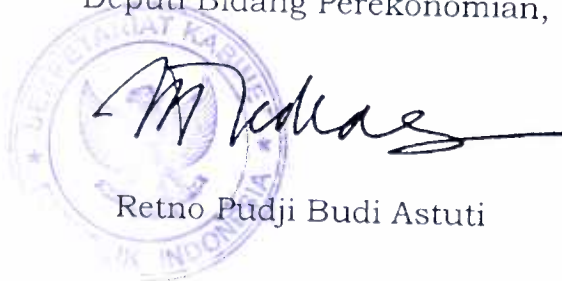 Deputi Bidang Perekonomian,
SEKRETARIAT KABINET
REPUBLIK INDONESIA
Retno Pudji Budi Astuti